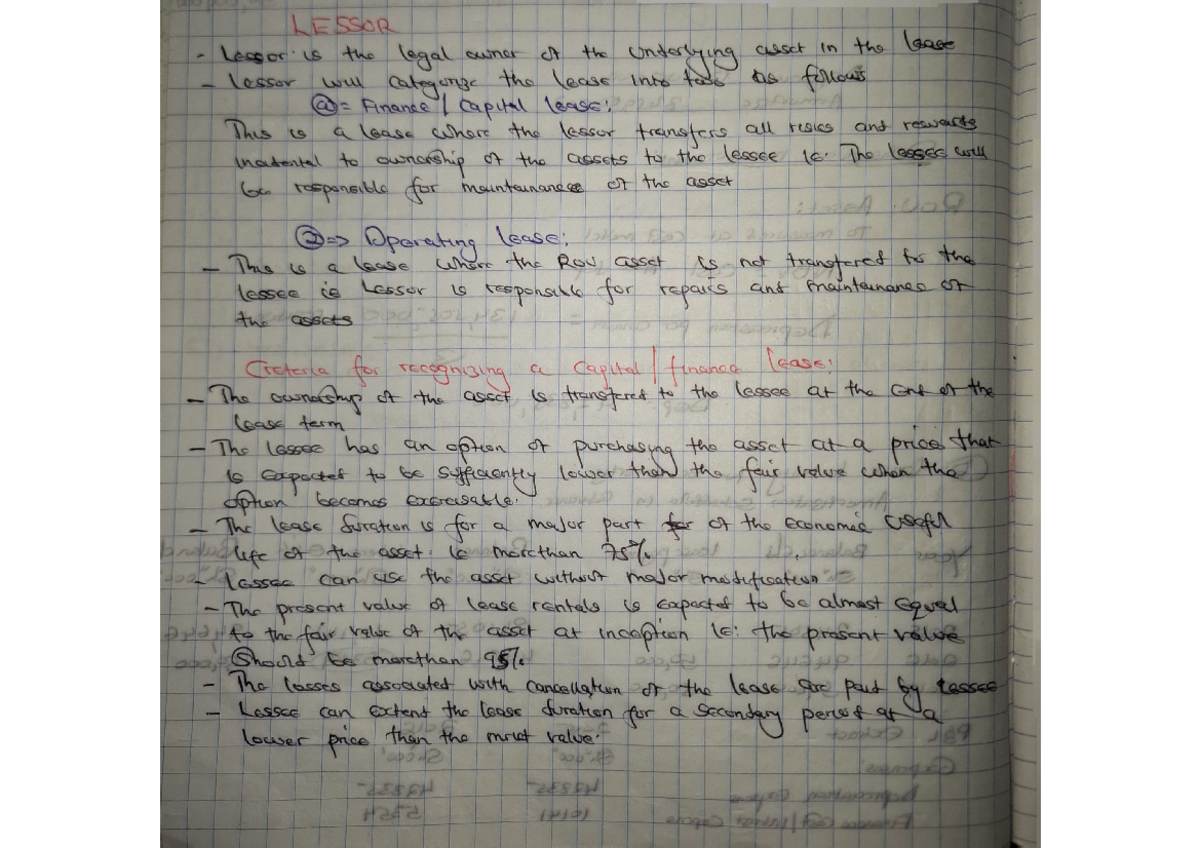 LESSOR
- Lessor is the legal owner of the underlying asset in the lease
- lessor will categorize the lease into two as follows
① = Finance / Capital lease:
This is a lease where the lessor transfers all risks and rewards
incidental to ownership of the assets to the lessee ie: The lessee will
be responsible for maintainance of the asset
② => Operating lease:
- This is a lease where the ROU asset is not transfered to the
lessee ie Lessor is responsible for repairs and maintainance of
the assets
Criteria for recognizing a capital / finance lease:
- The ownership of the asset is transfered to the lessee at the end of the
lease term
- The lessee has an option of purchasing the asset at a price that
is expected to be sufficiently lower than the fair value when the
option becomes exercisable.
- The lease duration is for a major part of the economic useful
life of the asset. ie morethan 75%
- Lessee can use the asset without major modification
- The present value of lease rentals is expected to be almost equal
to the fair value of the asset at inception ie: the present value
should be morethan 95%
- The losses associated with cancellation of the lease are paid by Lessee
- Lessee can extend the lease duration for a secondary period at a
lower price than the mrkt value.